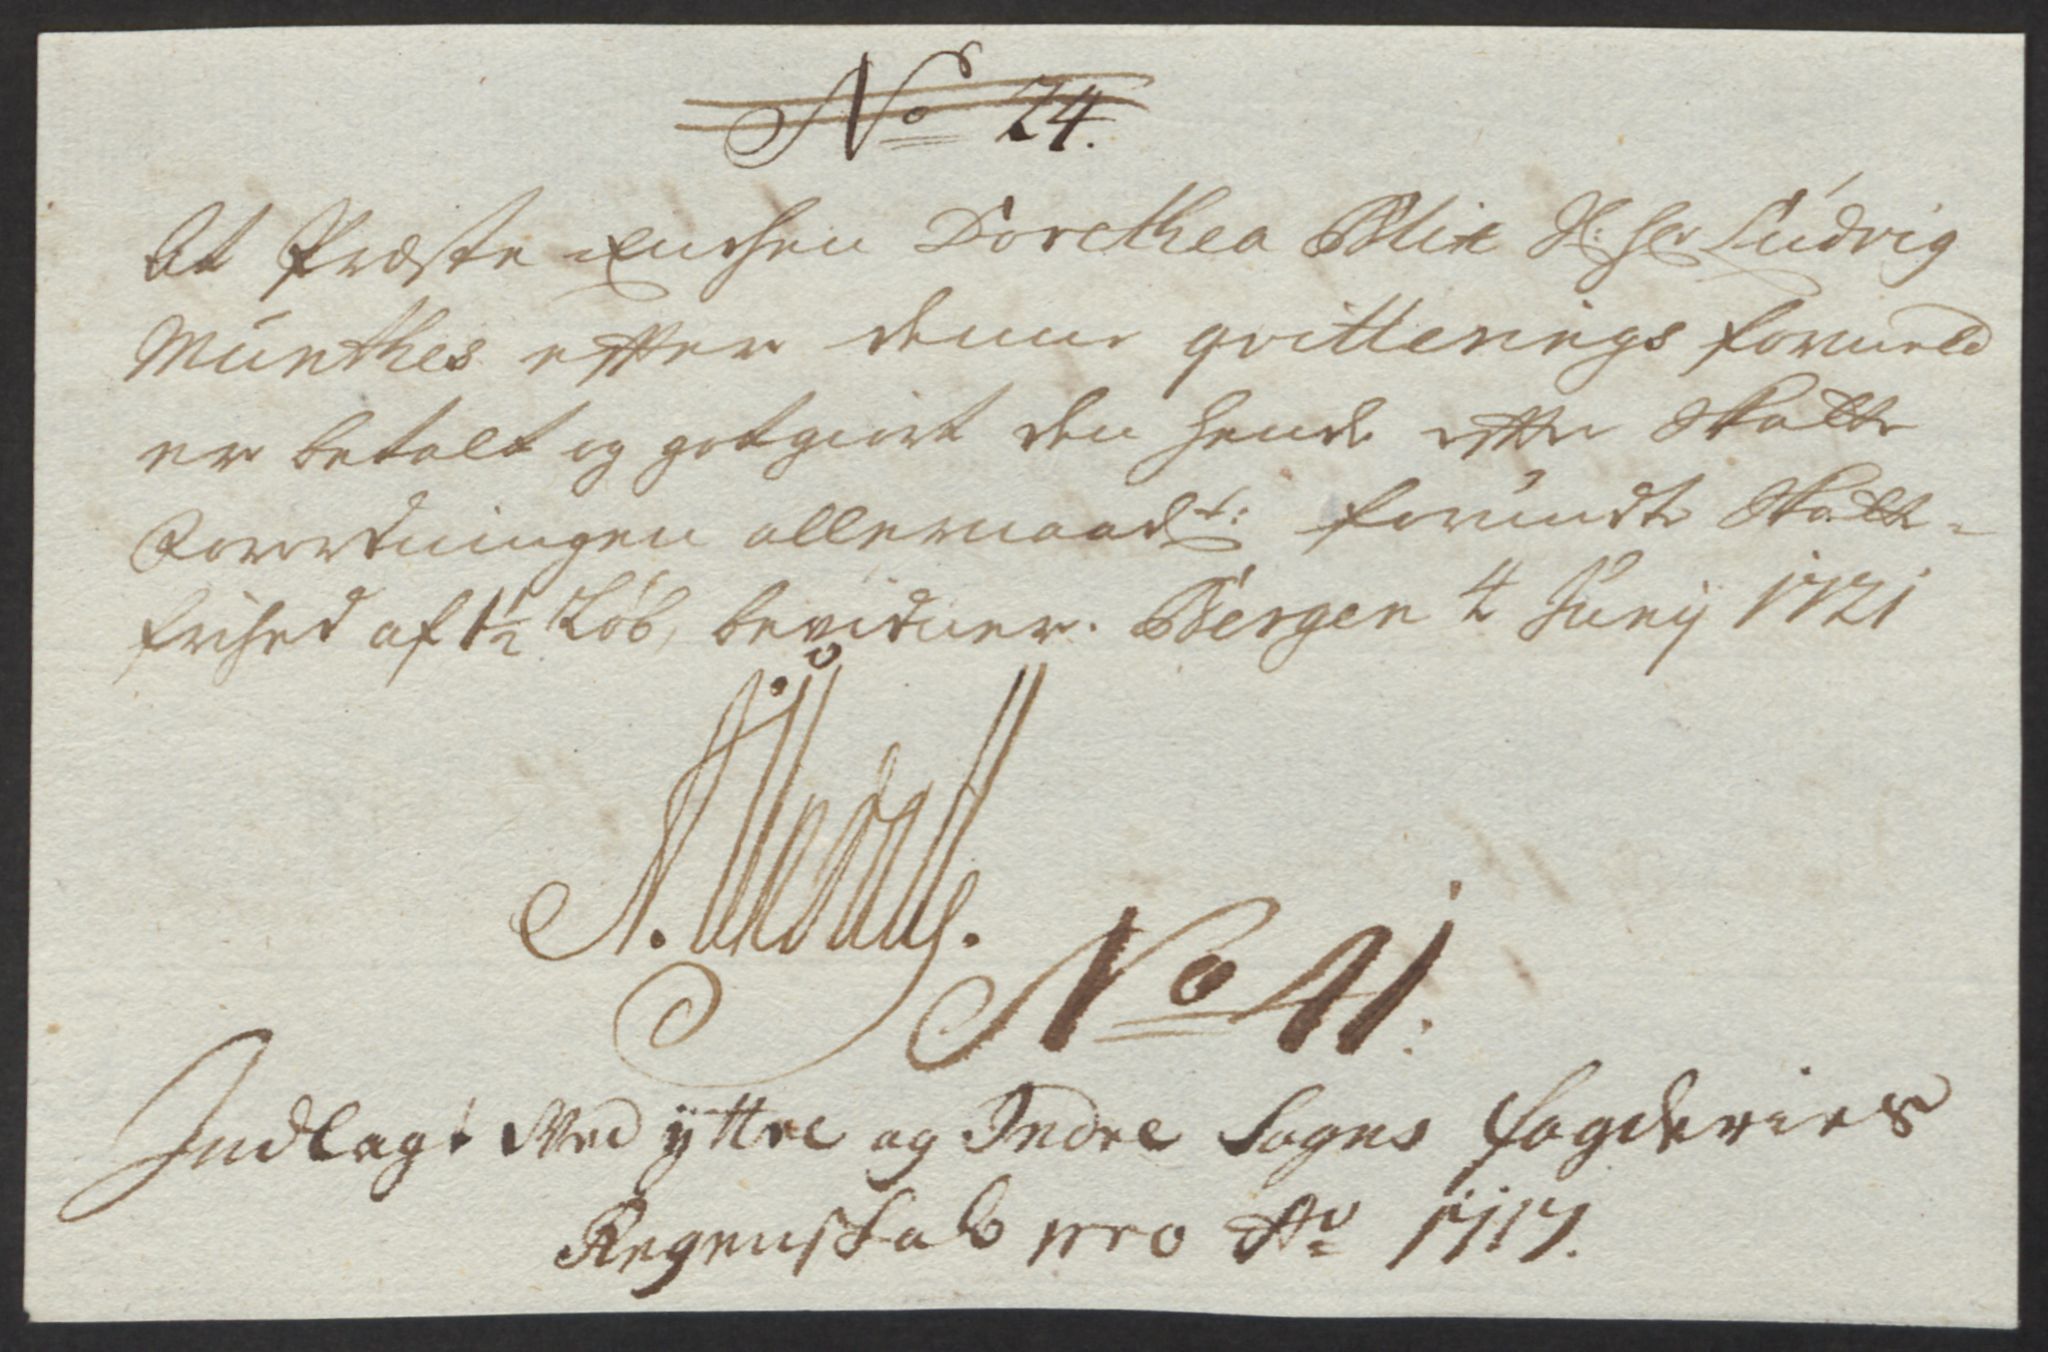 No 24.
At Præste Enchen Dorethea Blix Sl: Hr Ludvig
Münthes efter denne qvitterings formeld
er betalt og gotgiort den hende efter Skatte
Forordningen allernaadst: forundte Skatte-
frihed af 1½ Løb, bevidner. Bergen 4 Junij 1721
No 41.
Indlagt Med ÿttre og Indre Sogns fogderies
Regenskab pro Ao 1717.